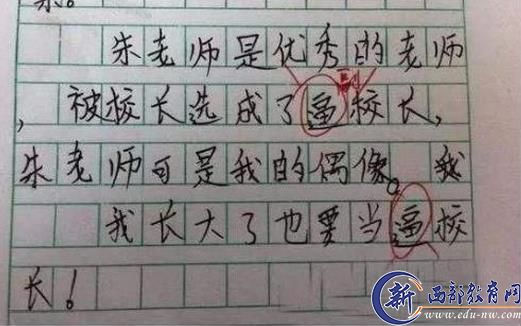 朱老师是优秀的老师
副
,被校长选成了逼校长,
朱老师可是我的偶像。我
我长大了也要当逼校
长!
新 西部教育网
www.edu-nw.com